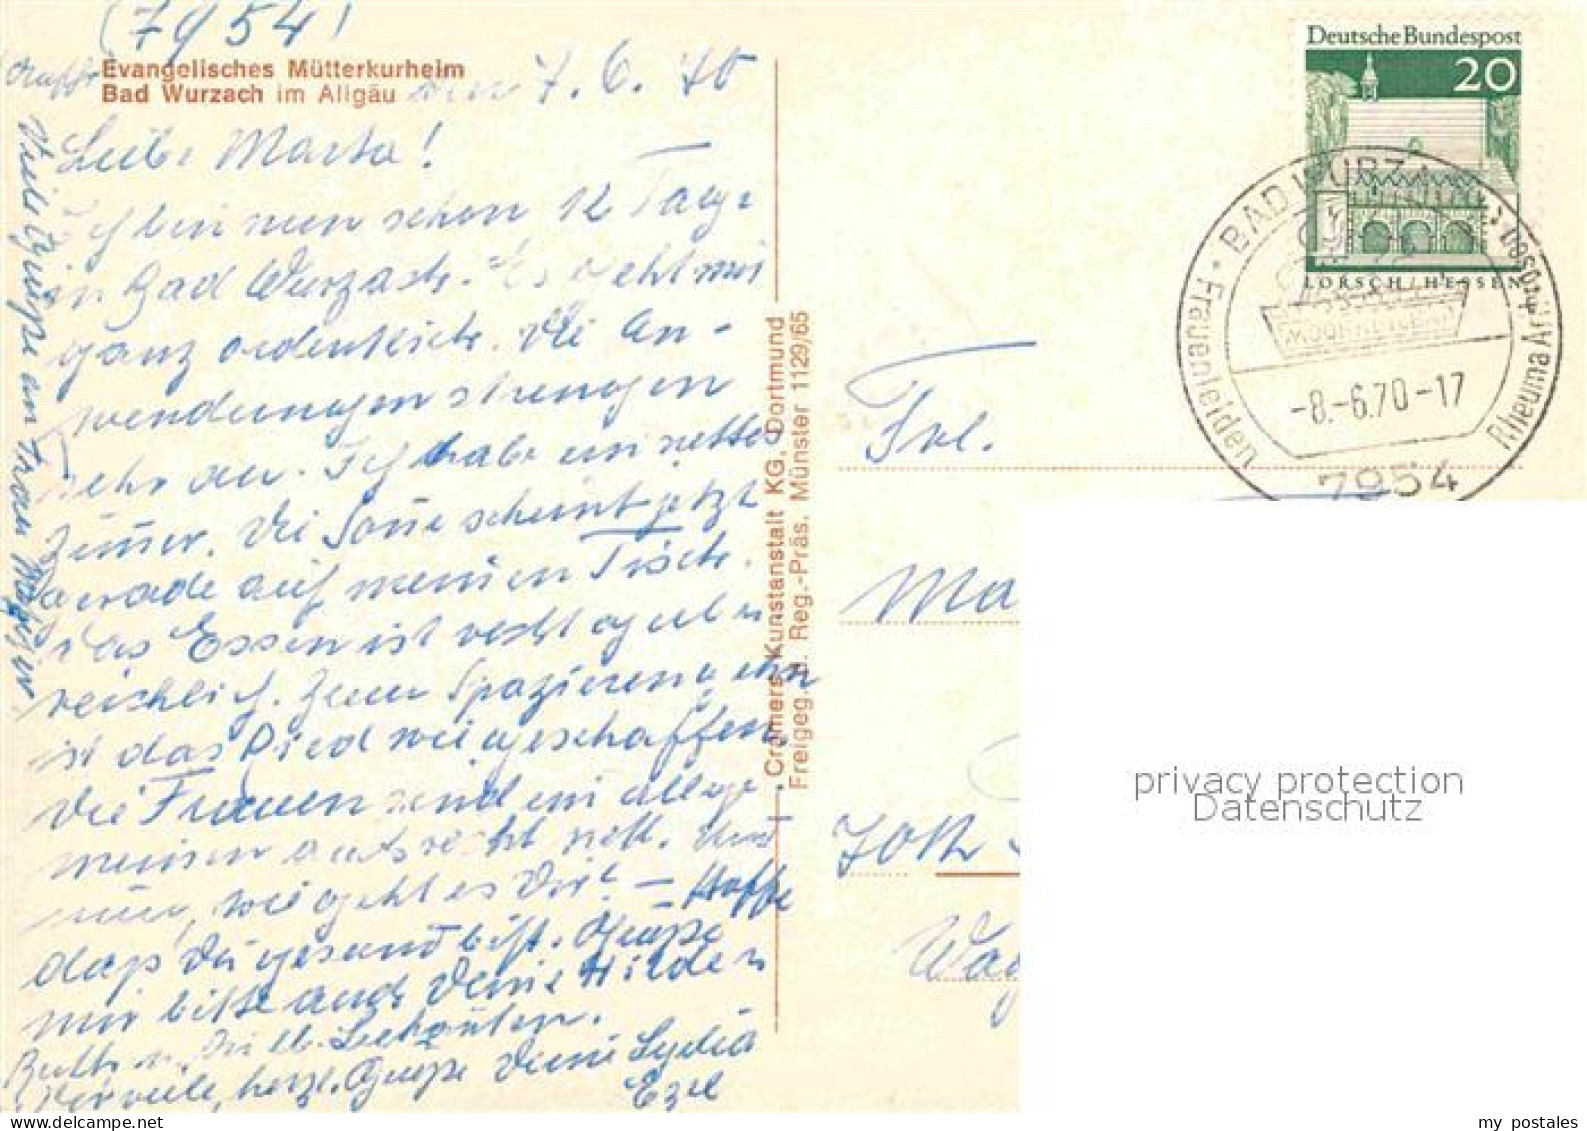 (7954)
Evangelisches Mütterkurheim
Bad Wurzach im Allgäu
den 7. 6. 70
Liebe Marta!
Ich bin nun schon 12 Tage
in Bad Wurzach. Es geht mir
ganz ordentlich. Die An-
wendungen strengen
sehr an. Ich habe ein nettes
Zimmer. Die Sonne scheint jetzt
gerade auf meinen Tisch.
Das Essen ist recht gut u.
reichlich. Zum Spazierengehn
ist das Ried wie geschaffen
Die Frauen sind im allge-
meinen auch recht nett. Und
nun, wie geht es Dir? – Hoffe
daß Du gesund bist. Grüße
mir bitte auch Deine Hilde u
Ruth u. Die lb.
herzl. Grüße Deine Lydia
Viele Grüße an Frau
Cramers Kunstanstalt KG, Dortmund
Freigeg. d. Reg.-Präs. Münster 1129/65
Deutsche Bundespost
20
LORSCH/HESSEN
BAD WURZACH
Rheuma
Frauenleiden
-8.-6.70-17
7954
Frl.
Ma
Wag
privacy protection
Datenschutz
my postales